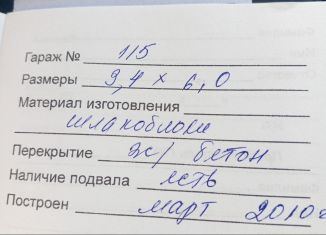 Гараж № 115
Размеры 9,4 х 6,0
Материал изготовления
шлакоблоки
Перекрытие ж/бетон
Наличие подвала есть
Построен март 2010г